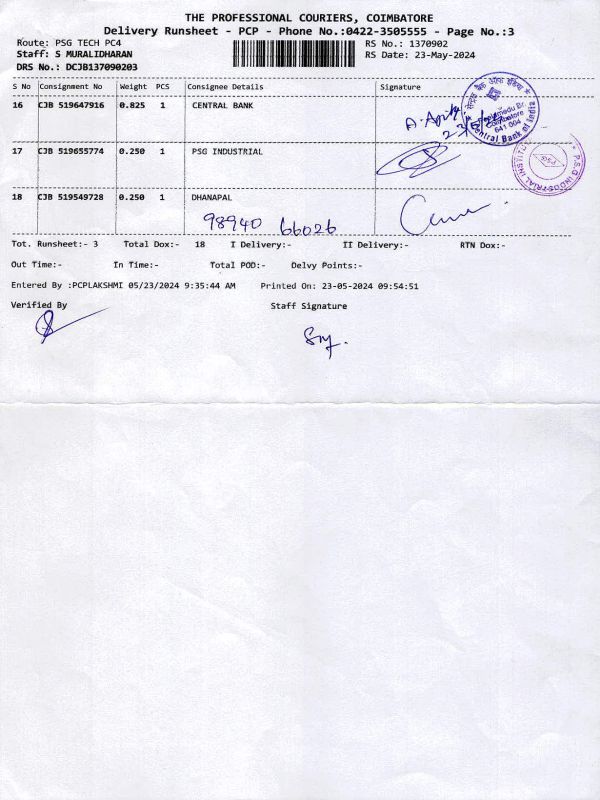 THE PROFESSIONAL COURIERS, COIMBATORE
Delivery Runsheet - PCP - Phone No.:0422-3505555 - Page No.:3
Route: PSG TECH PC4 RS No.: 1370902
Staff: S MURALIDHARAN RS Date: 23-May-2024
DRS No.: DCJB137090203
S No Consignment No Weight PCS Consignee Details Signature
16 CJB 519647916 0.825 1 CENTRAL BANK
Central Bank of India
Coimbatore
641 004
17 CJB 519655774 0.250 1 PSG INDUSTRIAL
P.S.G INDUSTRIAL INSTITUTE
PSG
18 CJB 519549728 0.250 1 DHANAPAL
98940 66026
Tot. Runsheet:- 3 Total Dox:- 18 I Delivery:- II Delivery:- RTN Dox:-
Out Time:- In Time:- Total POD:- Delvy Points:-
Entered By :PCPLAKSHMI 05/23/2024 9:35:44 AM Printed On: 23-05-2024 09:54:51
Verified By Staff Signature